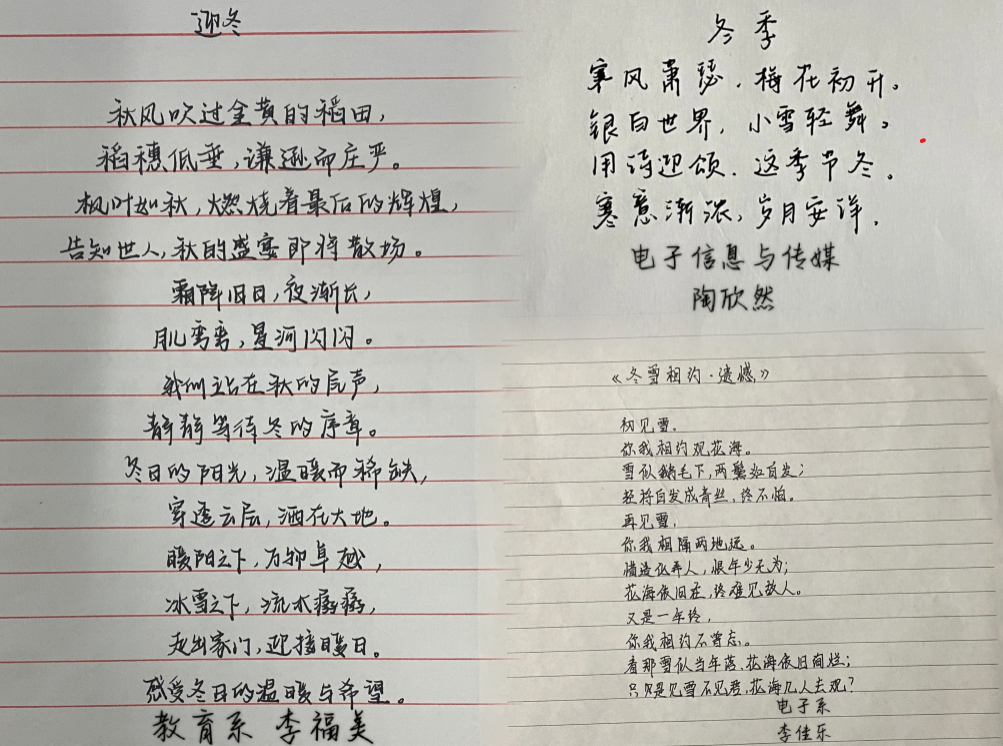 迎冬
秋风吹过金黄的稻田，
稻穗低垂，谦逊而庄严。
枫叶如秋，燃烧着最后的辉煌，
告知世人，秋的盛宴即将散场。
霜降旧日，夜渐长，
月儿弯弯，星河闪闪。
我们站在秋的尾声，
静静等待冬的序章。
冬日的阳光，温暖而稀缺，
穿透云层，洒在大地。
暖阳之下，万物阜
冰雪之下，流水潺潺，
走出家门，迎接暖日。
感受冬日的温暖与希望。
教育系 李福美
冬季
寒风萧瑟．梅花初开。
银白世界，小雪轻舞。
用诗迎颂．这季节冬。
寒意渐浓，岁月安详．
电子信息与传媒
陶欣然
《冬雪相约·遗憾》
初见雪，
你我相约观花海。
雪似鹅毛下，两鬓如白发；
轻将白发成青丝，终不怕。
再见雪，
你我相隔两地远。
惜造化弄人，恨年少无为；
花海依旧在，终难见故人。
又是一年终，
你我相约不曾忘。
看那雪似当年落，花海依旧绚烂；
只是见雪不见君，花海几人去观？
电子系
李佳乐